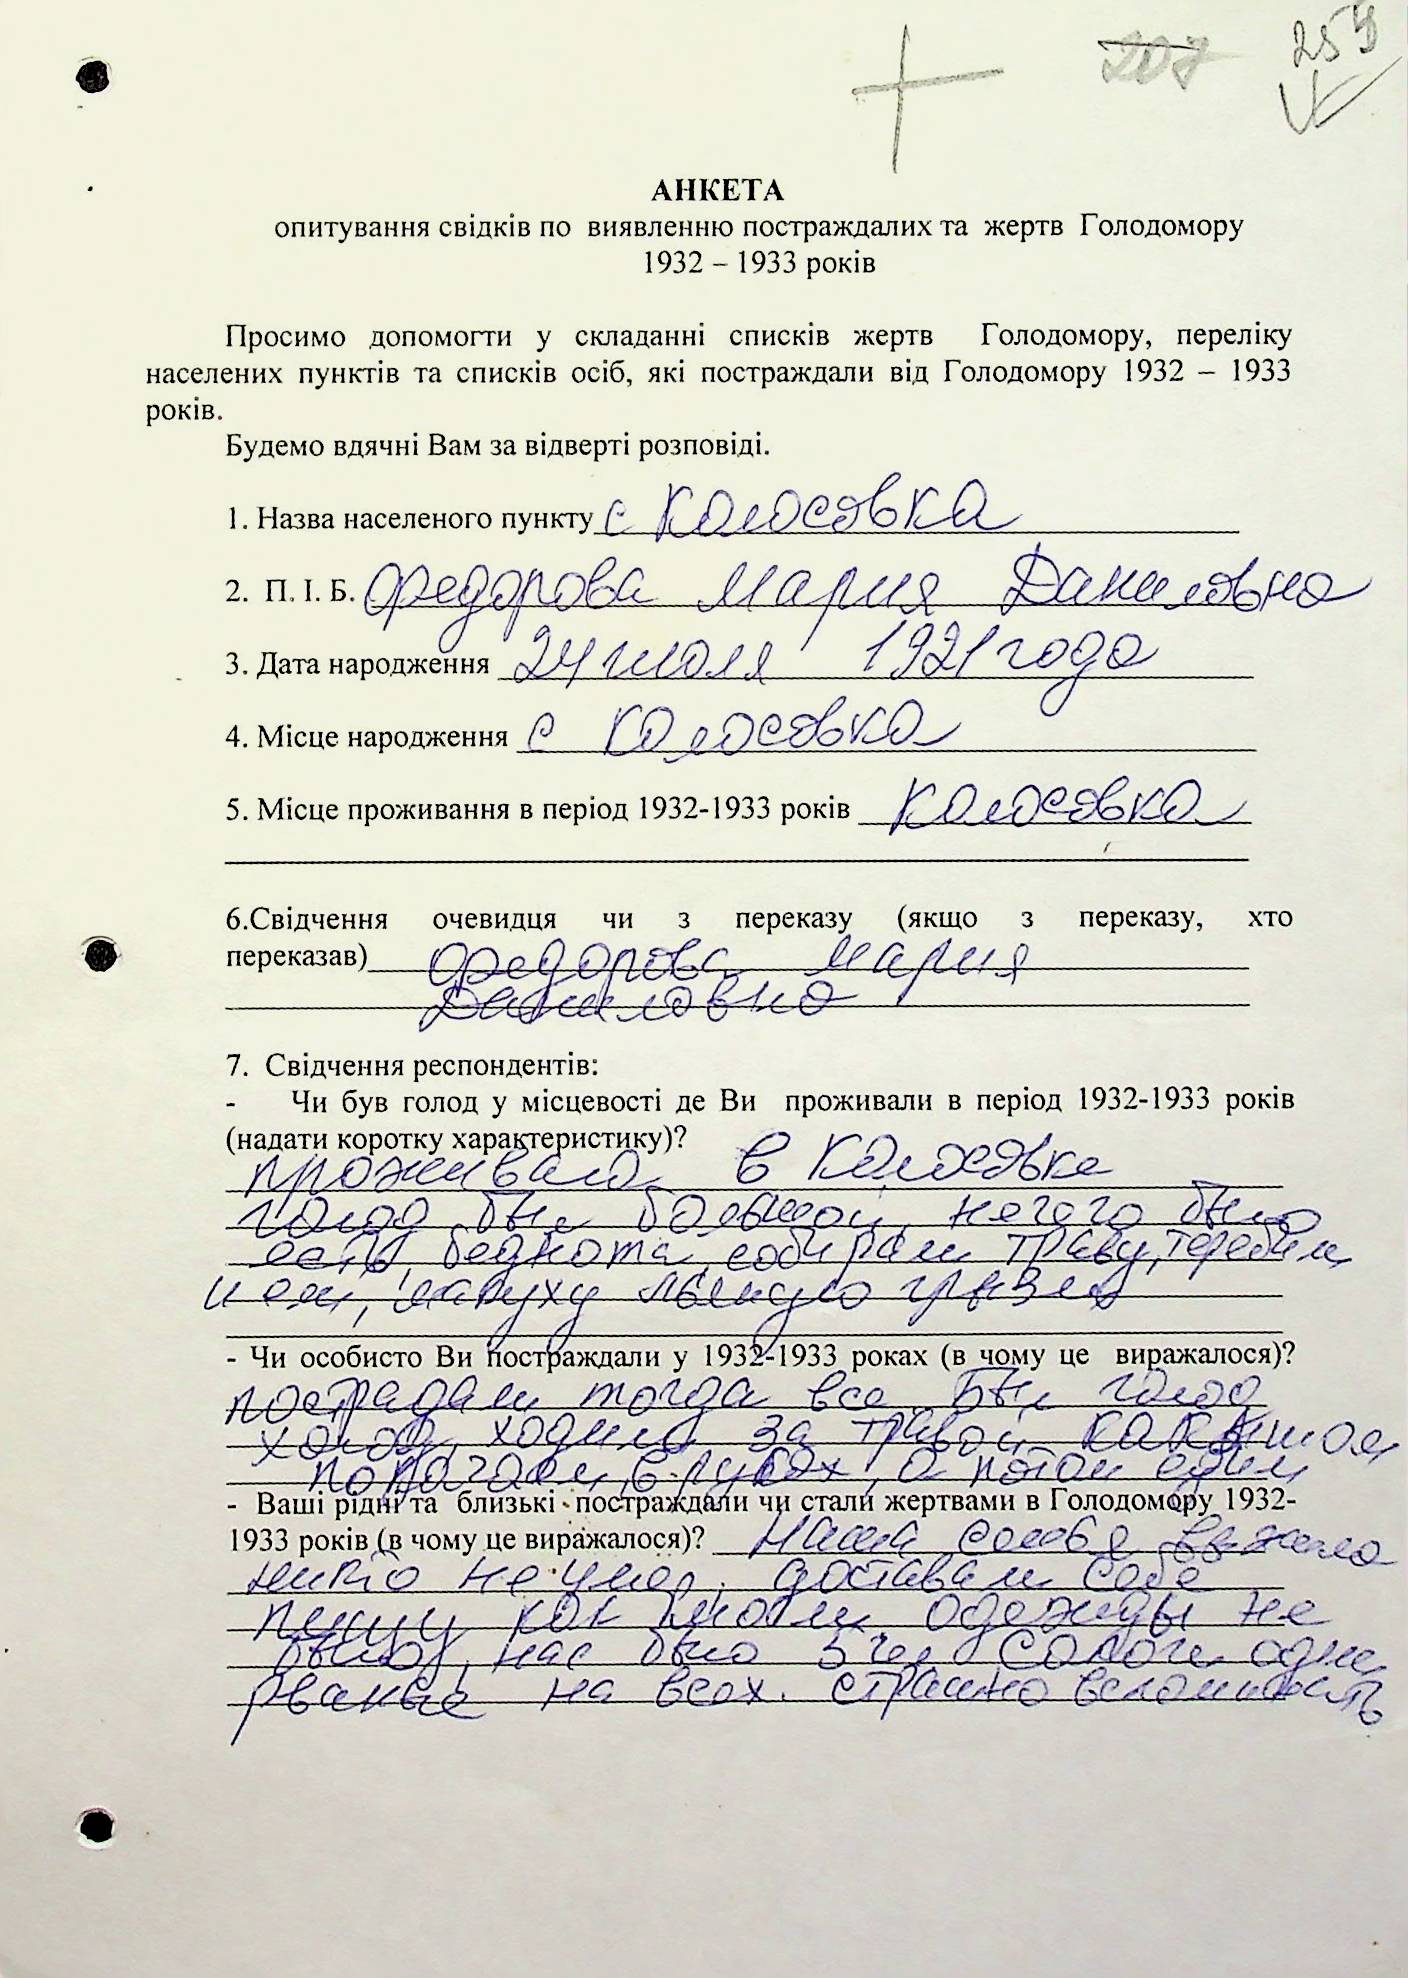 207 259
АНКЕТА
опитування свідків по виявленню постраждалих та жертв Голодомору
1932 – 1933 років
Просимо допомогти у складанні списків жертв Голодомору, переліку
населених пунктів та списків осіб, які постраждали від Голодомору 1932 – 1933
років.
Будемо вдячні Вам за відверті розповіді.
1. Назва населеного пункту с Колосовка
2. П. І. Б. Федорова Мария Даниловна
3. Дата народження 24 июля 1921 года
4. Місце народження с Колосовка
5. Місце проживання в період 1932-1933 років Колосовка
6.Свідчення очевидця чи з переказу (якщо з переказу, хто
переказав) Федорова Мария
Даниловна
7. Свідчення респондентів:
- Чи був голод у місцевості де Ви проживали в період 1932-1933 років
(надати коротку характеристику)?
проживала в Колосовке
голод был большой, нечего было
есть, беднота, собирали траву, теребили
и ели, макуху грызли
- Чи особисто Ви постраждали у 1932-1933 роках (в чому це виражалося)?
пострадали тогда все. Был голод
холод, ходили за травой
в руках, а потом едим
- Ваші рідні та близькі постраждали чи стали жертвами в Голодомору 1932-
1933 років (в чому це виражалося)? Наша семья выжила
никто не умер, доставали себе
пищу как могли одежды не
было, нас было 5 чел сапоги одни
рваные на всех. страшно вспоминать